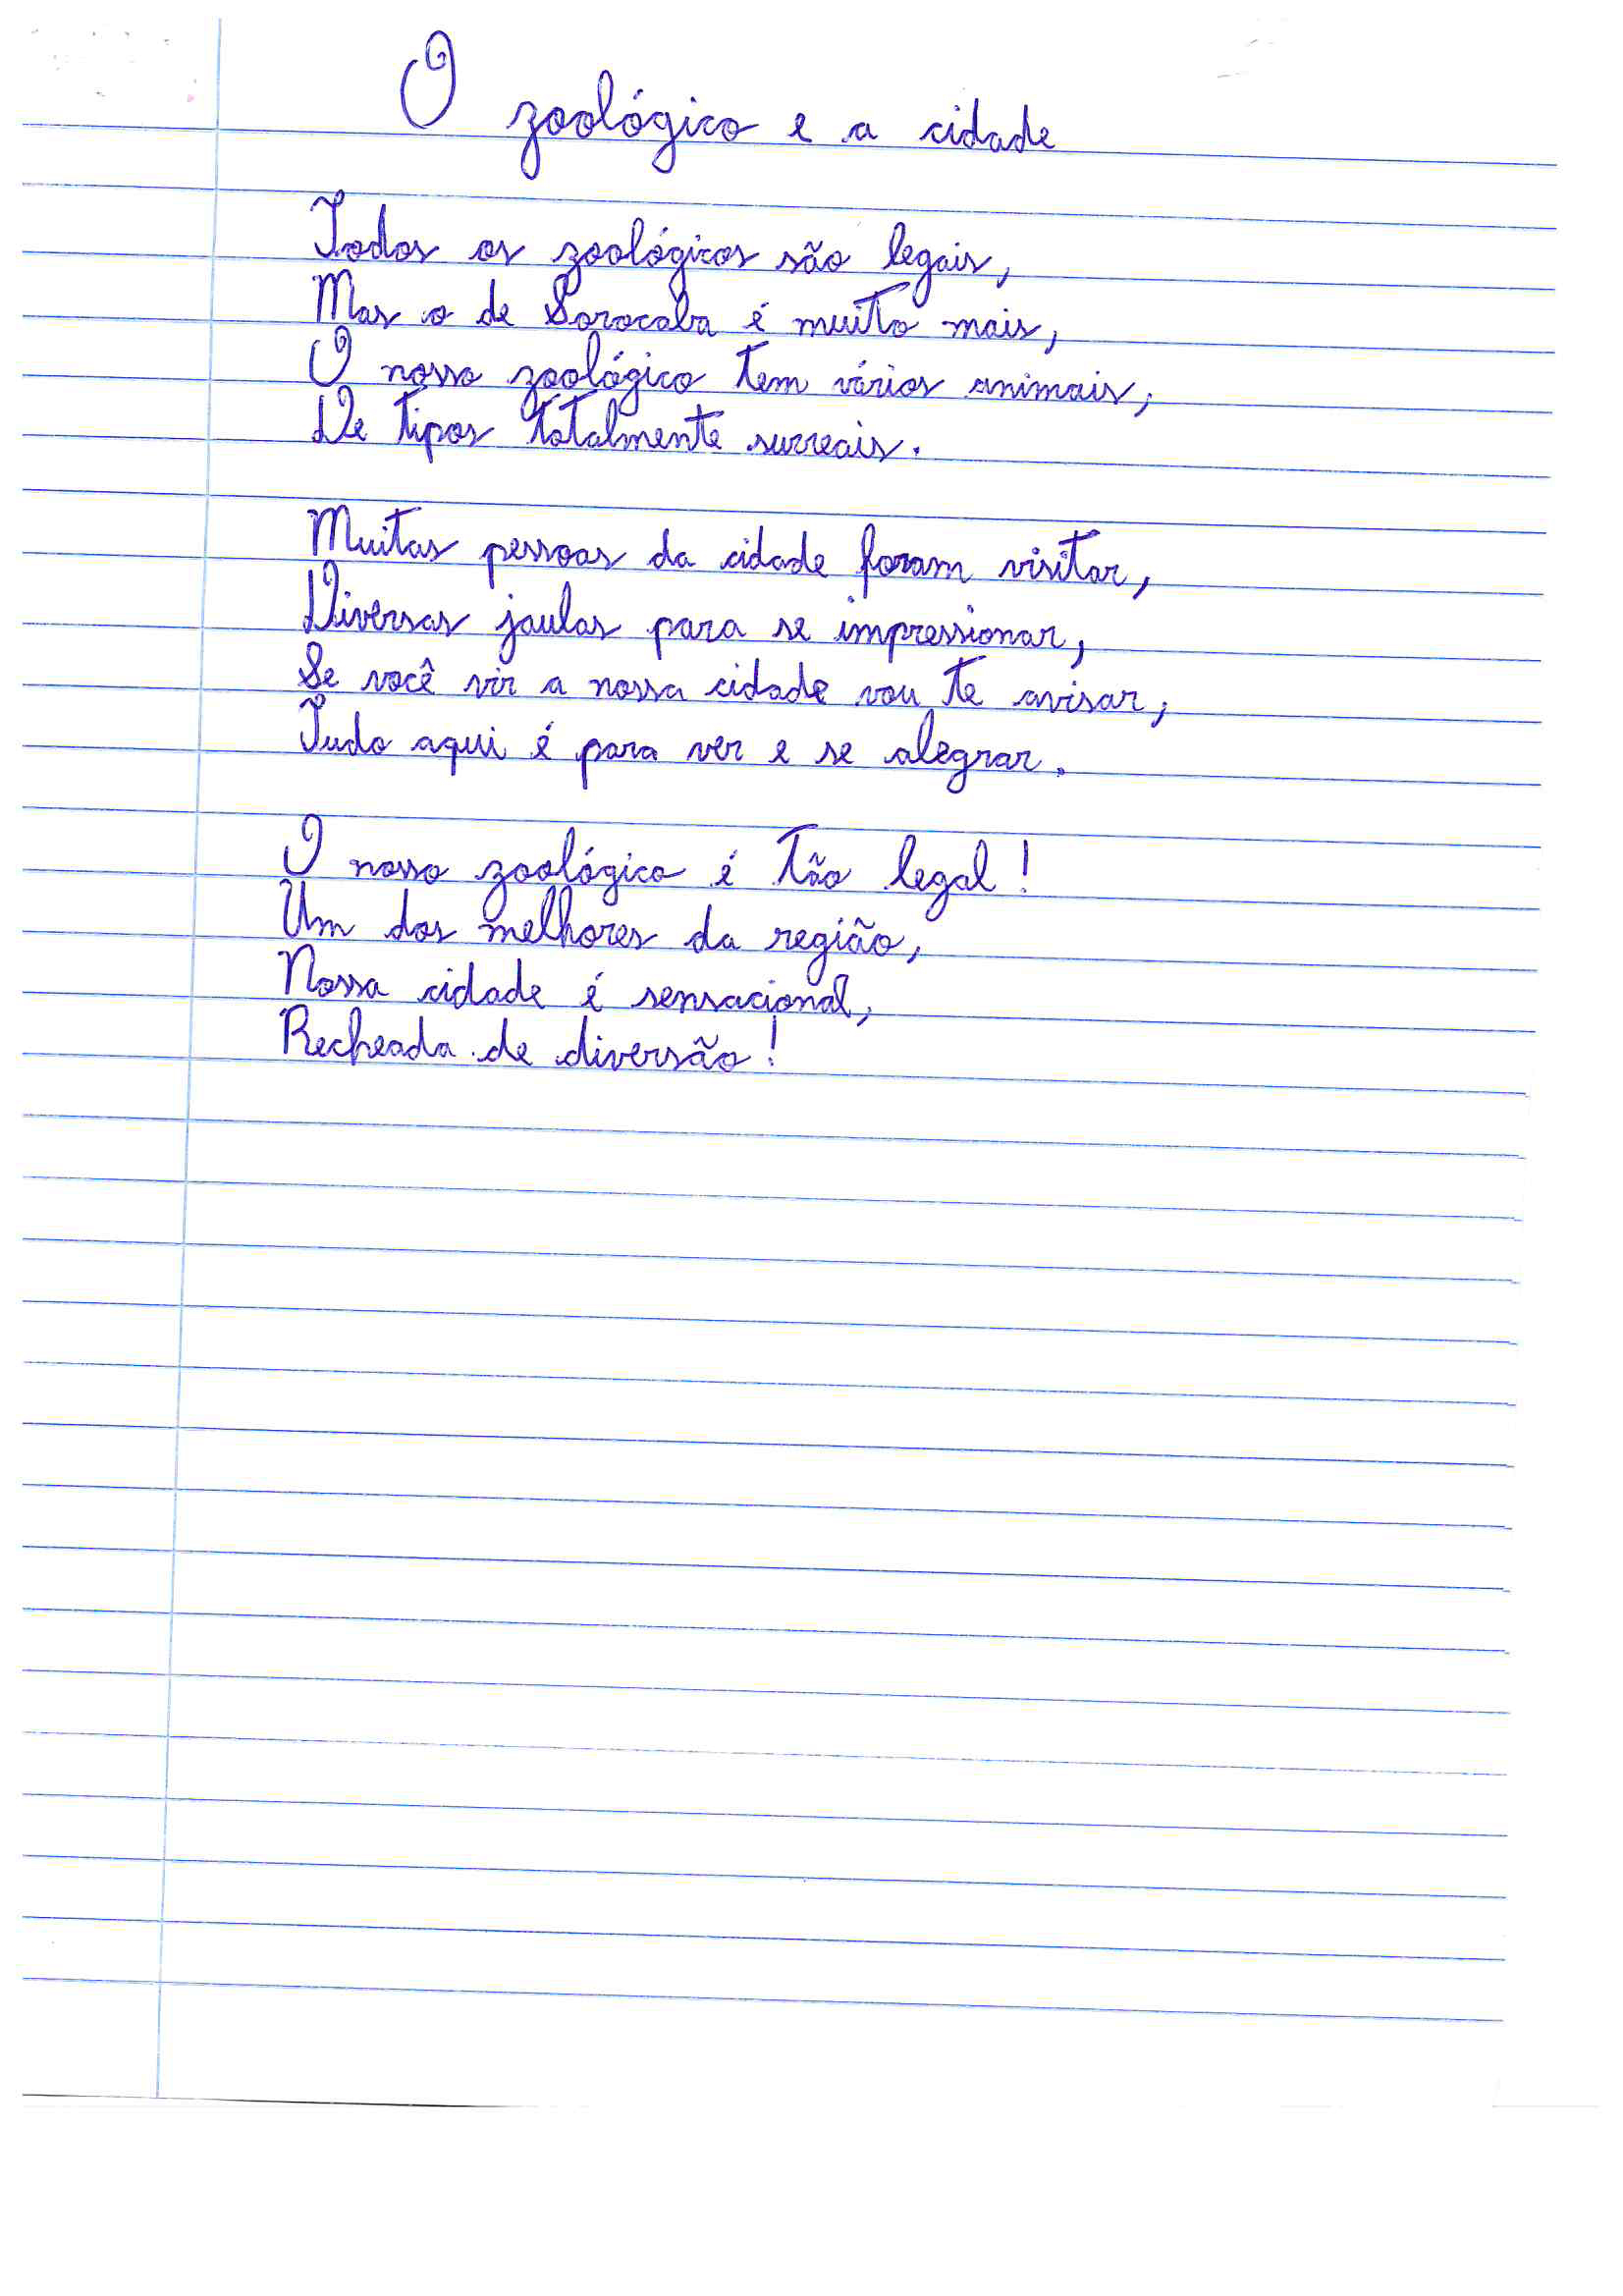 O zoológico e a cidade
Todos os zoológicos são legais,
Mas o de Sorocaba é muito mais,
O nosso zoológico tem vários animais,
De tipos totalmente surreais.
Muitas pessoas da cidade foram visitar,
Diversas jaulas para se impressionar,
Se você vir a nossa cidade vou te avisar,
Tudo aqui é para ver e se alegrar.
O nosso zoológico é tão legal!
Um dos melhores da região,
Nossa cidade é sensacional,
Recheada de diversão!